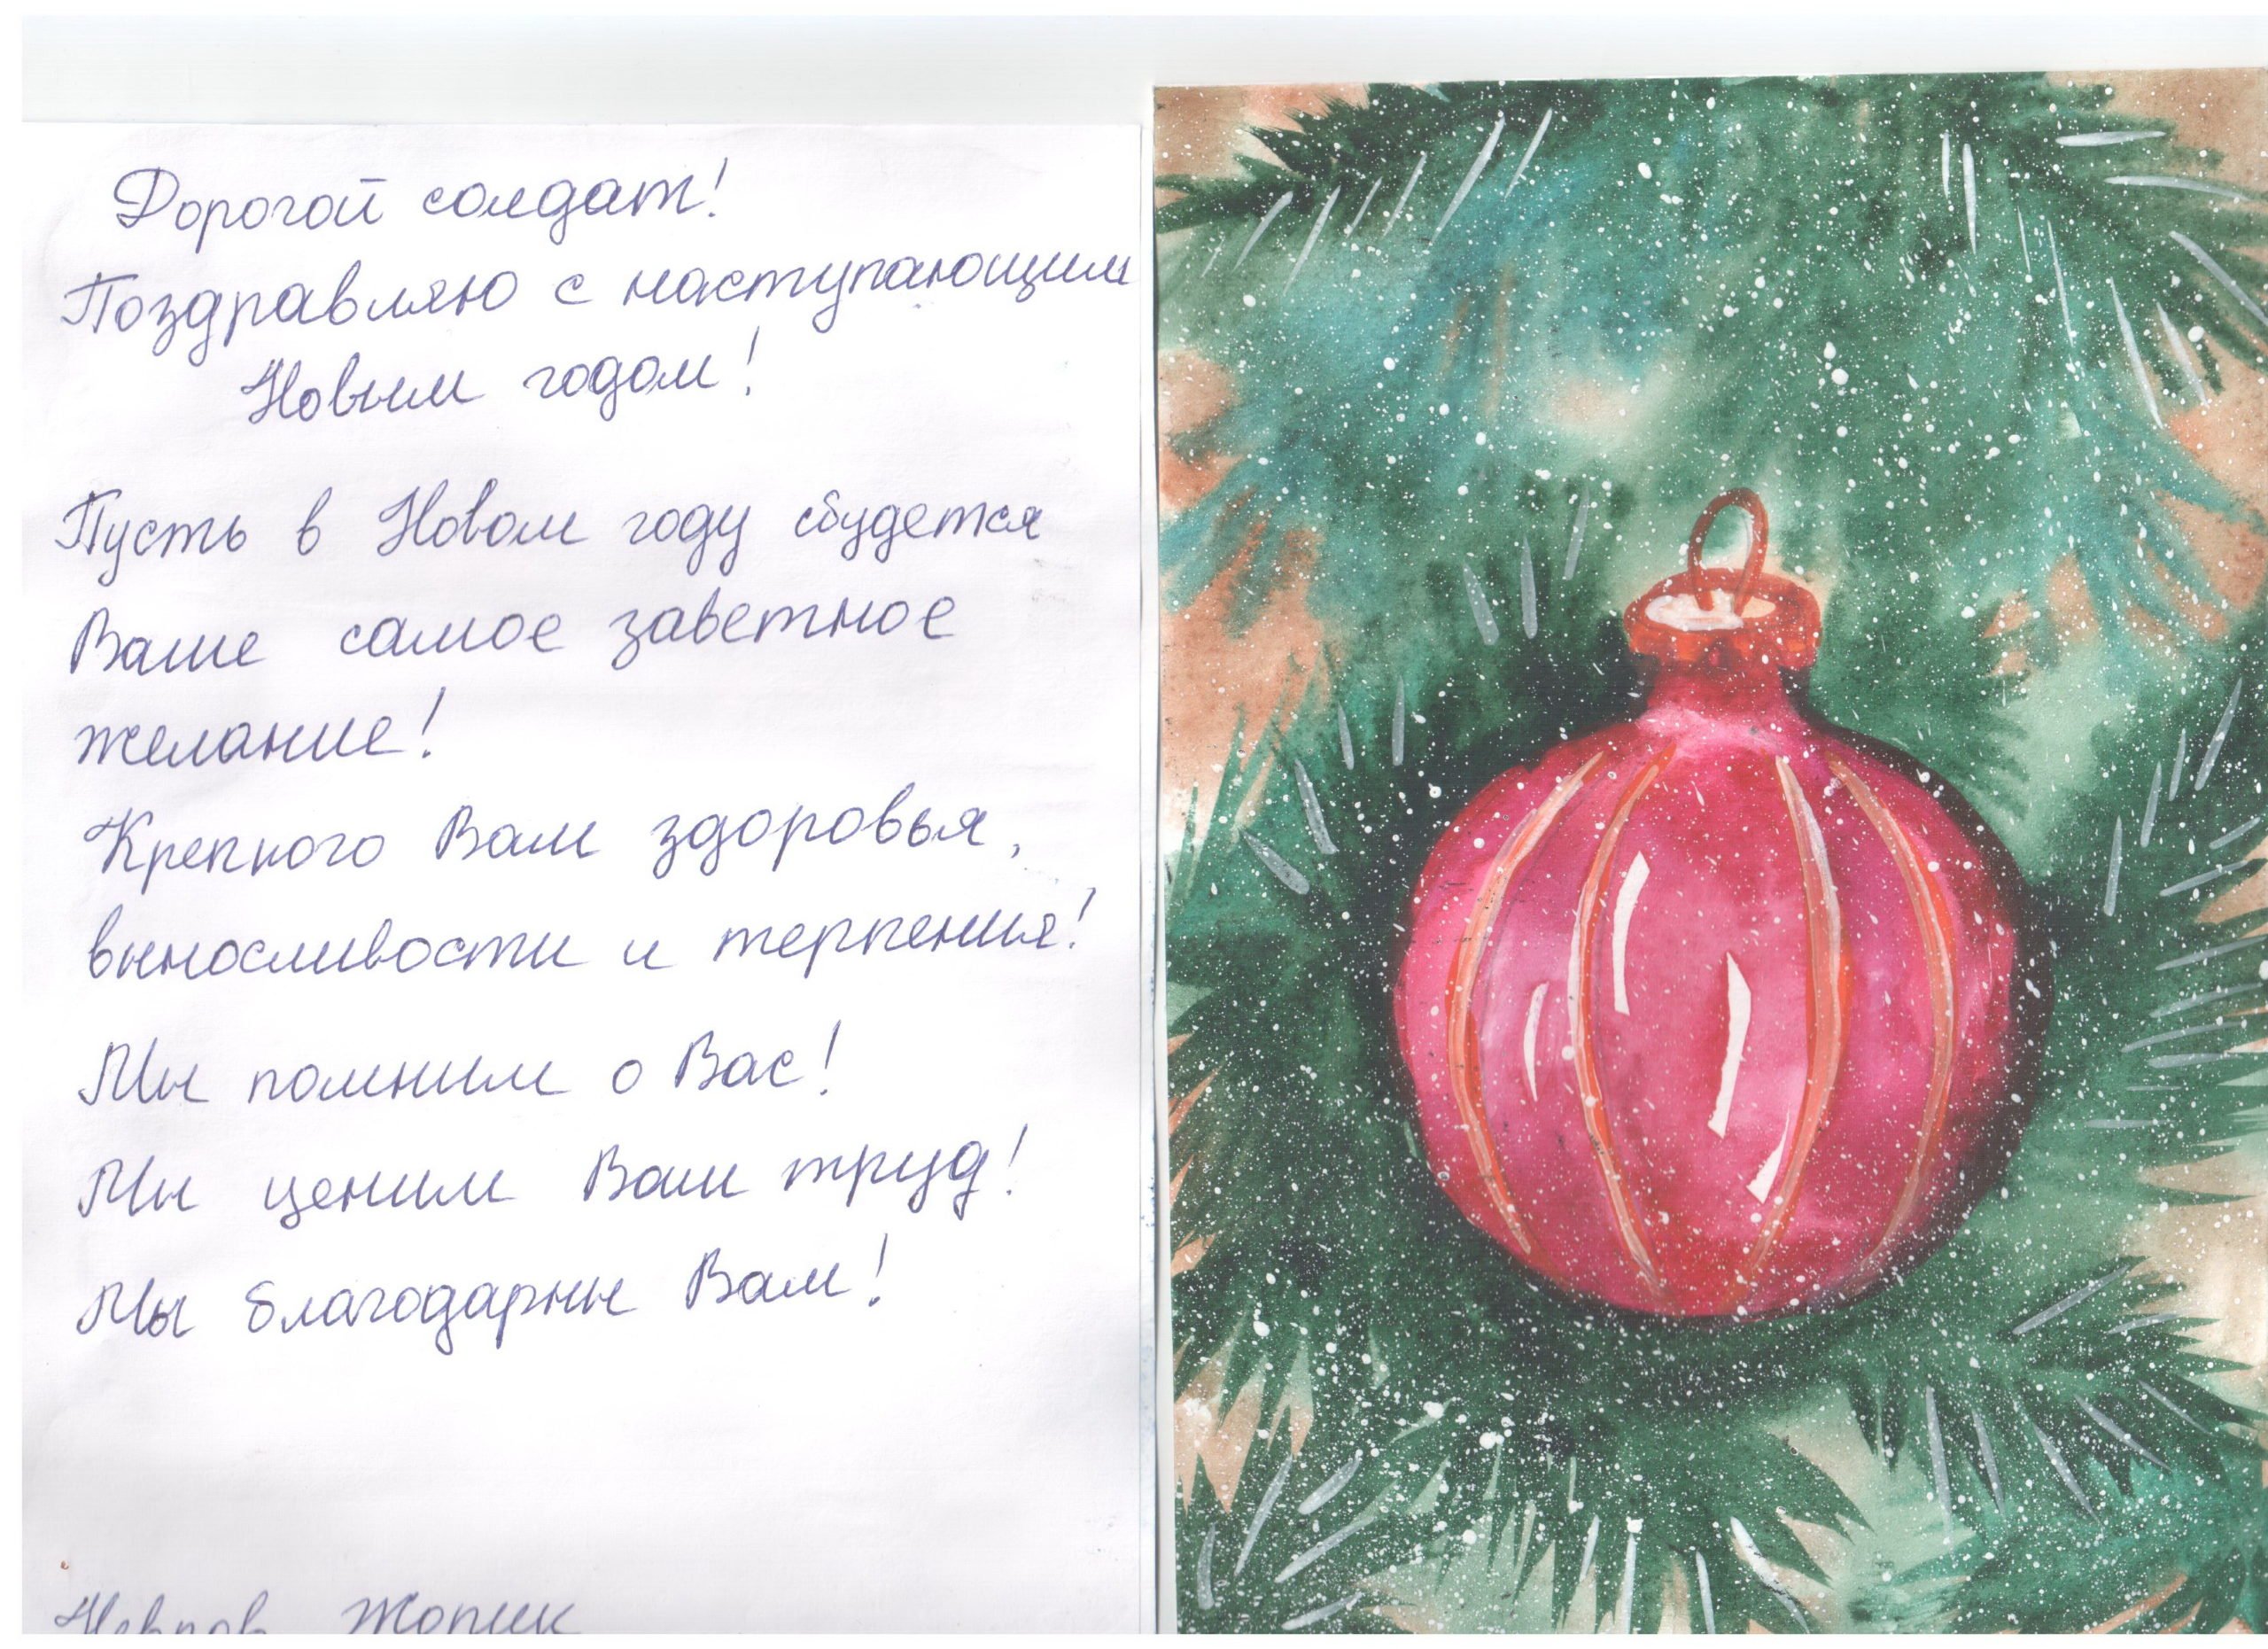 Дорогой солдат!
Поздравляю с наступающим
Новым годом!
Пусть в Новом году сбудется
Ваше самое заветное
желание!
Крепкого Вам здоровья,
выносливости и терпения!
Мы помним о Вас!
Мы ценим Ваш труд!
Мы благодарны Вам!